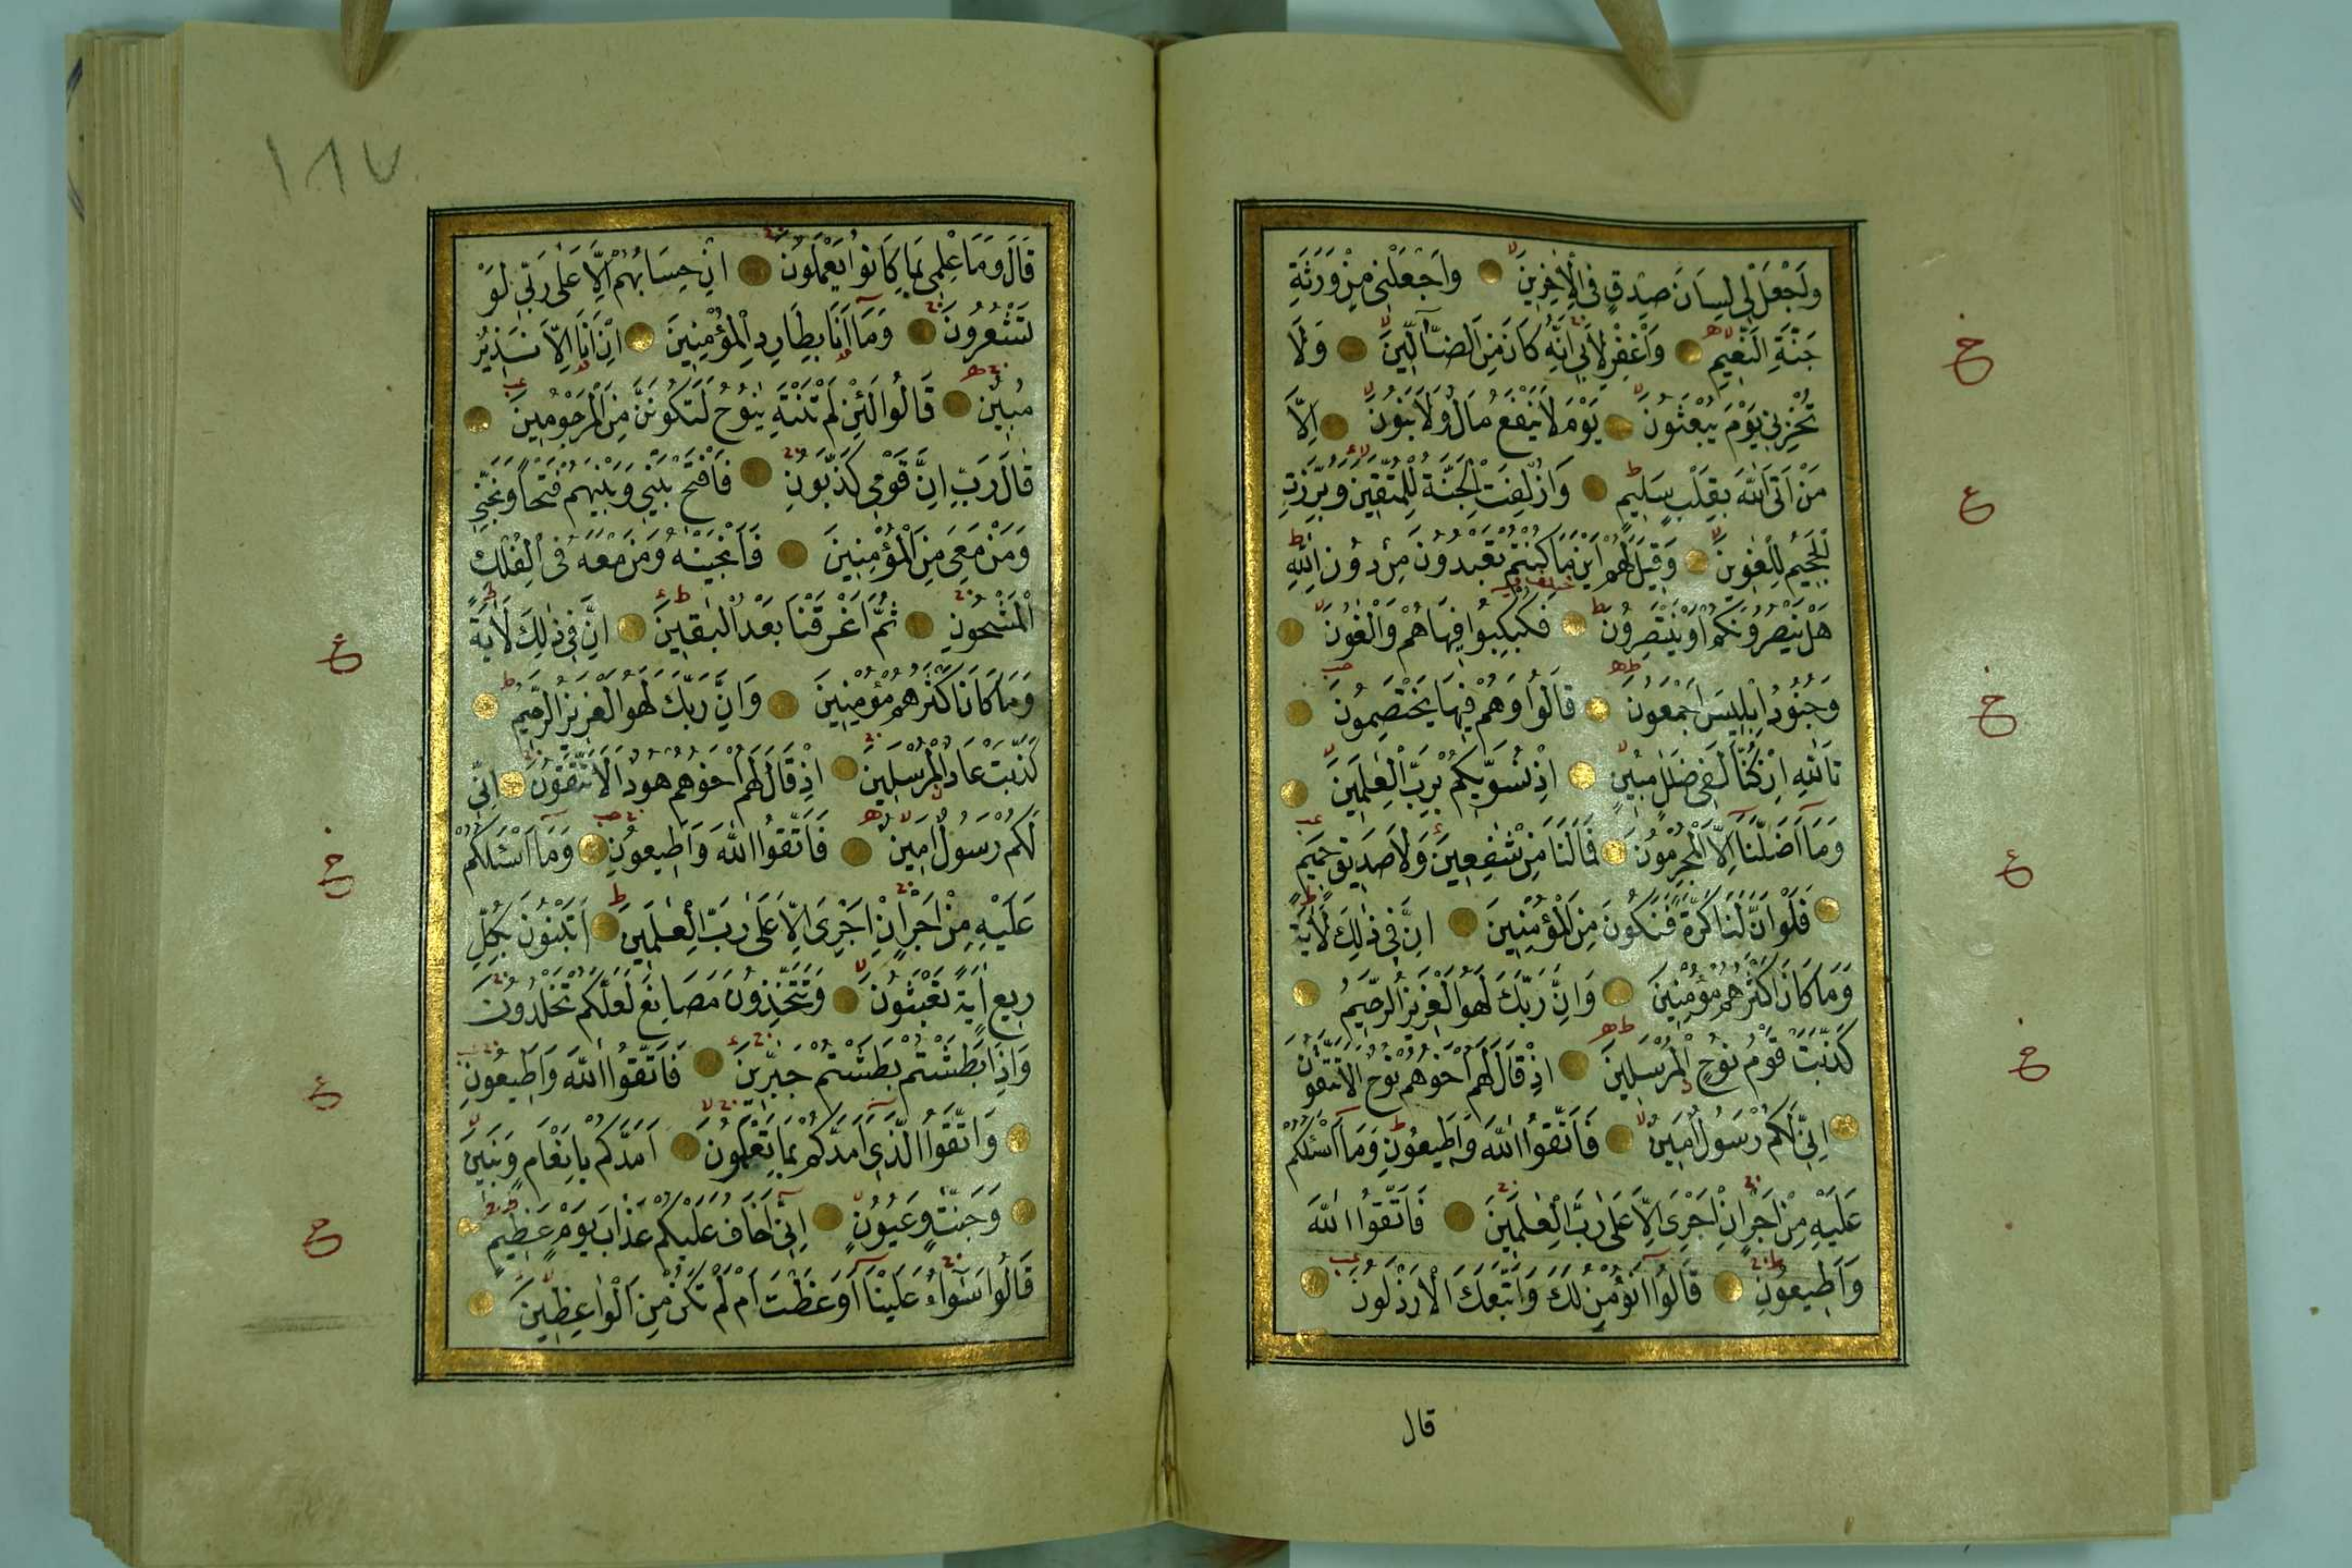 وَاجْعَلْ لِي لِسَانَ صِدْقٍ فِي الْاٰخِرِينَ وَاجْعَلْنِي مِنْ وَرَثَةِ
جَنَّةِ النَّعِيمِ وَاغْفِرْ لِاَبِي اِنَّهُ كَانَ مِنَ الضَّالِّينَ وَلَا
تُخْزِنِي يَوْمَ يُبْعَثُونَ يَوْمَ لَا يَنْفَعُ مَالٌ وَلَا بَنُونَ اِلَّا
مَنْ اَتَى اللّٰهَ بِقَلْبٍ سَلِيمٍ وَاُزْلِفَتِ الْجَنَّةُ لِلْمُتَّقِينَ وَبُرِّزَتِ
الْجَحِيمُ لِلْغٰوِينَ وَقِيلَ لَهُمْ اَيْنَ مَا كُنْتُمْ تَعْبُدُونَ مِنْ دُونِ اللّٰهِ
هَلْ يَنْصُرُونَكُمْ اَوْ يَنْتَصِرُونَ فَكُبْكِبُوا فِيهَا هُمْ وَالْغٰوُنَ
وَجُنُودُ اِبْلِيسَ اَجْمَعُونَ قَالُوا وَهُمْ فِيهَا يَخْتَصِمُونَ
تَاللّٰهِ اِنْ كُنَّا لَفِي ضَلٰلٍ مُبِينٍ اِذْ نُسَوِّيكُمْ بِرَبِّ الْعٰلَمِينَ
وَمَا اَضَلَّنَا اِلَّا الْمُجْرِمُونَ فَمَا لَنَا مِنْ شٰفِعِينَ وَلَا صَدِيقٍ حَمِيمٍ
فَلَوْ اَنَّ لَنَا كَرَّةً فَنَكُونَ مِنَ الْمُؤْمِنِينَ اِنَّ فِي ذٰلِكَ لَاٰيَةً
وَمَا كَانَ اَكْثَرُهُمْ مُؤْمِنِينَ وَاِنَّ رَبَّكَ لَهُوَ الْعَزِيزُ الرَّحِيمُ
كَذَّبَتْ قَوْمُ نُوحٍ الْمُرْسَلِينَ اِذْ قَالَ لَهُمْ اَخُوهُمْ نُوحٌ اَلَا تَتَّقُونَ
اِنِّي لَكُمْ رَسُولٌ اَمِينٌ فَاتَّقُوا اللّٰهَ وَاَطِيعُونِ وَمَا اَسْئَلُكُمْ
عَلَيْهِ مِنْ اَجْرٍ اِنْ اَجْرِيَ اِلَّا عَلٰى رَبِّ الْعٰلَمِينَ فَاتَّقُوا اللّٰهَ
وَاَطِيعُونِ قَالُوا اَنُؤْمِنُ لَكَ وَاتَّبَعَكَ الْاَرْذَلُونَ
قال
١٨٧
قَالَ وَمَا عِلْمِي بِمَا كَانُوا يَعْمَلُونَ اِنْ حِسَابُهُمْ اِلَّا عَلٰى رَبِّي لَوْ
تَشْعُرُونَ وَمَا اَنَا بِطَارِدِ الْمُؤْمِنِينَ اِنْ اَنَا اِلَّا نَذِيرٌ
مُبِينٌ قَالُوا لَئِنْ لَمْ تَنْتَهِ يٰنُوحُ لَتَكُونَنَّ مِنَ الْمَرْجُومِينَ
قَالَ رَبِّ اِنَّ قَوْمِي كَذَّبُونِ فَافْتَحْ بَيْنِي وَبَيْنَهُمْ فَتْحًا وَنَجِّنِي
وَمَنْ مَعِيَ مِنَ الْمُؤْمِنِينَ فَاَنْجَيْنٰهُ وَمَنْ مَعَهُ فِي الْفُلْكِ
الْمَشْحُونِ ثُمَّ اَغْرَقْنَا بَعْدُ الْبٰقِينَ اِنَّ فِي ذٰلِكَ لَاٰيَةً
وَمَا كَانَ اَكْثَرُهُمْ مُؤْمِنِينَ وَاِنَّ رَبَّكَ لَهُوَ الْعَزِيزُ الرَّحِيمُ
كَذَّبَتْ عَادٌ الْمُرْسَلِينَ اِذْ قَالَ لَهُمْ اَخُوهُمْ هُودٌ اَلَا تَتَّقُونَ اِنِّي
لَكُمْ رَسُولٌ اَمِينٌ فَاتَّقُوا اللّٰهَ وَاَطِيعُونِ وَمَا اَسْئَلُكُمْ
عَلَيْهِ مِنْ اَجْرٍ اِنْ اَجْرِيَ اِلَّا عَلٰى رَبِّ الْعٰلَمِينَ اَتَبْنُونَ بِكُلِّ
رِيعٍ اٰيَةً تَعْبَثُونَ وَتَتَّخِذُونَ مَصَانِعَ لَعَلَّكُمْ تَخْلُدُونَ
وَاِذَا بَطَشْتُمْ بَطَشْتُمْ جَبَّارِينَ فَاتَّقُوا اللّٰهَ وَاَطِيعُونِ
وَاتَّقُوا الَّذِي اَمَدَّكُمْ بِمَا تَعْلَمُونَ اَمَدَّكُمْ بِاَنْعَامٍ وَبَنِينَ
وَجَنّٰتٍ وَعُيُونٍ اِنِّي اَخَافُ عَلَيْكُمْ عَذَابَ يَوْمٍ عَظِيمٍ
قَالُوا سَوَاءٌ عَلَيْنَا اَوَعَظْتَ اَمْ لَمْ تَكُنْ مِنَ الْوَاعِظِينَ